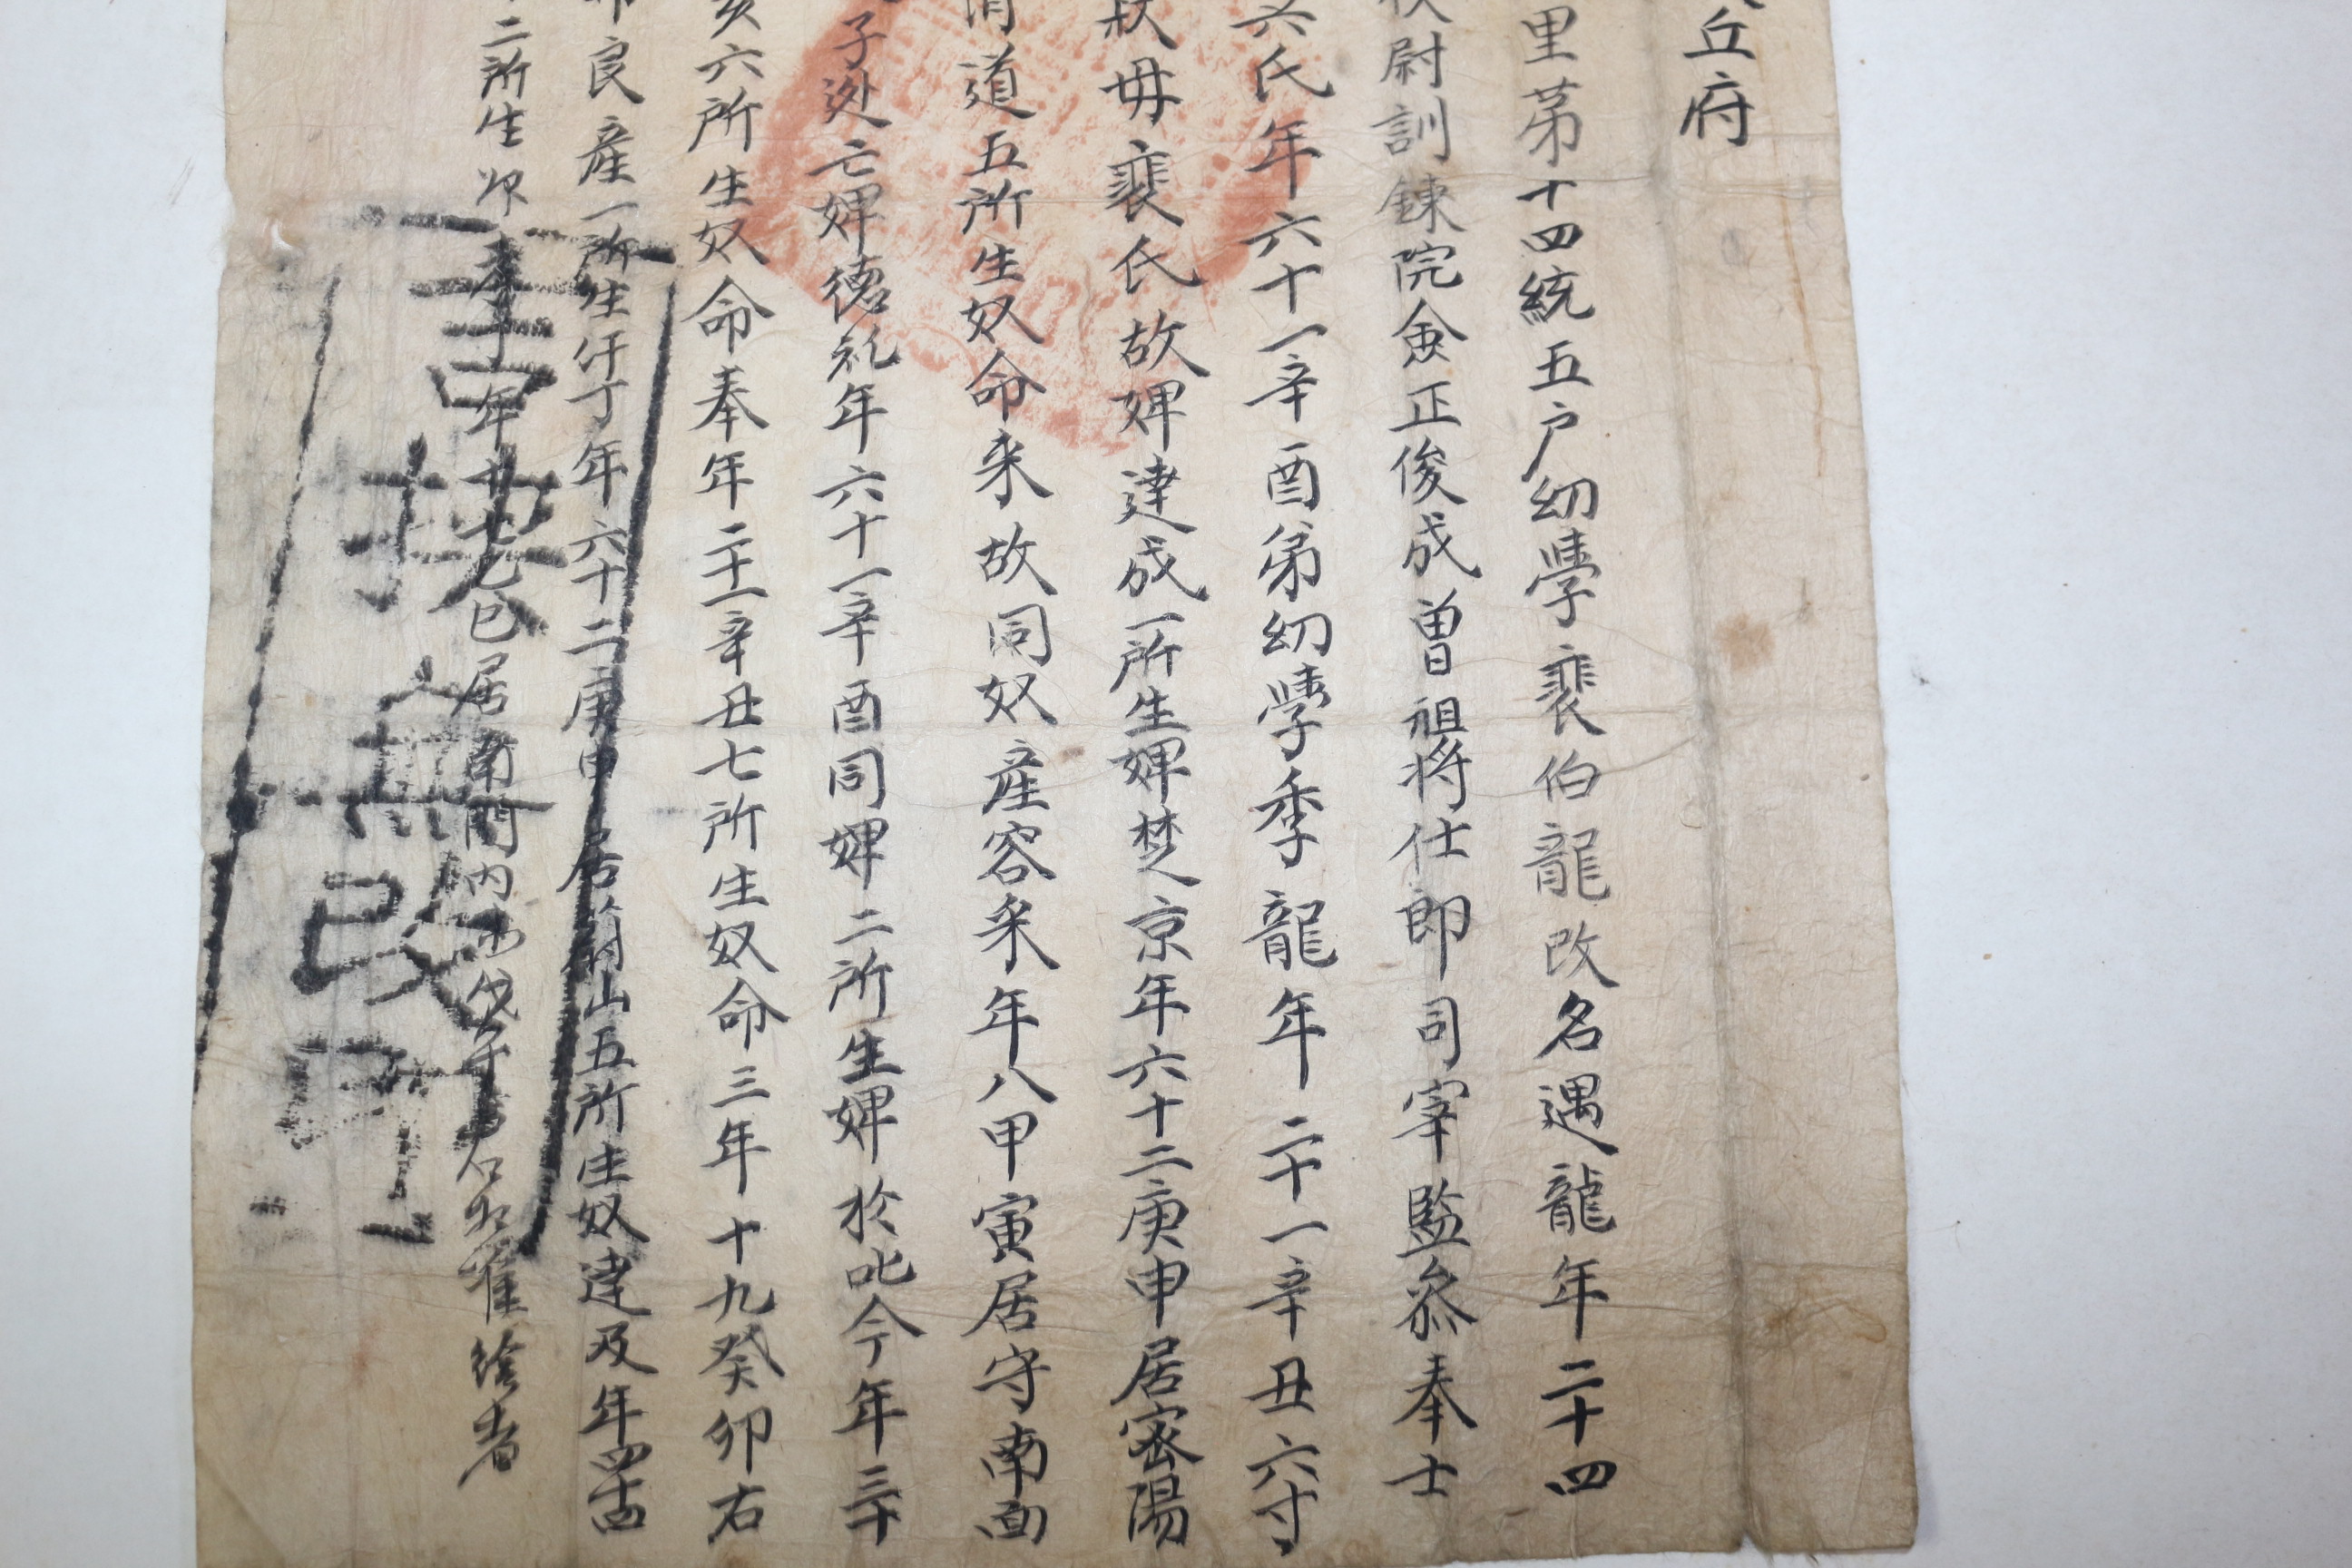 丘府
里苐十四統五户幼學裵伯龍改名遇龍年二十四
尉訓鍊院僉正俊成曽祖將仕郎司宰監叅奉士
氏年六十一辛酉弟幼學季龍年二十一辛丑六寸
毋裵氏故婢建成一所生婢楚京年六十二庚申居密陽
道五所生奴命釆故同奴産容釆年八甲寅居守南面
子逃亡婢德礼年六十一辛酉同婢二所生婢於叱今年三十
六所生奴命奉年二十一辛丑七所生奴命三年十九癸卯右
良産一所生仟丁年六十二庚申居山五所生奴建及年四古
二所生年已居南門內準給者
周挾無改印